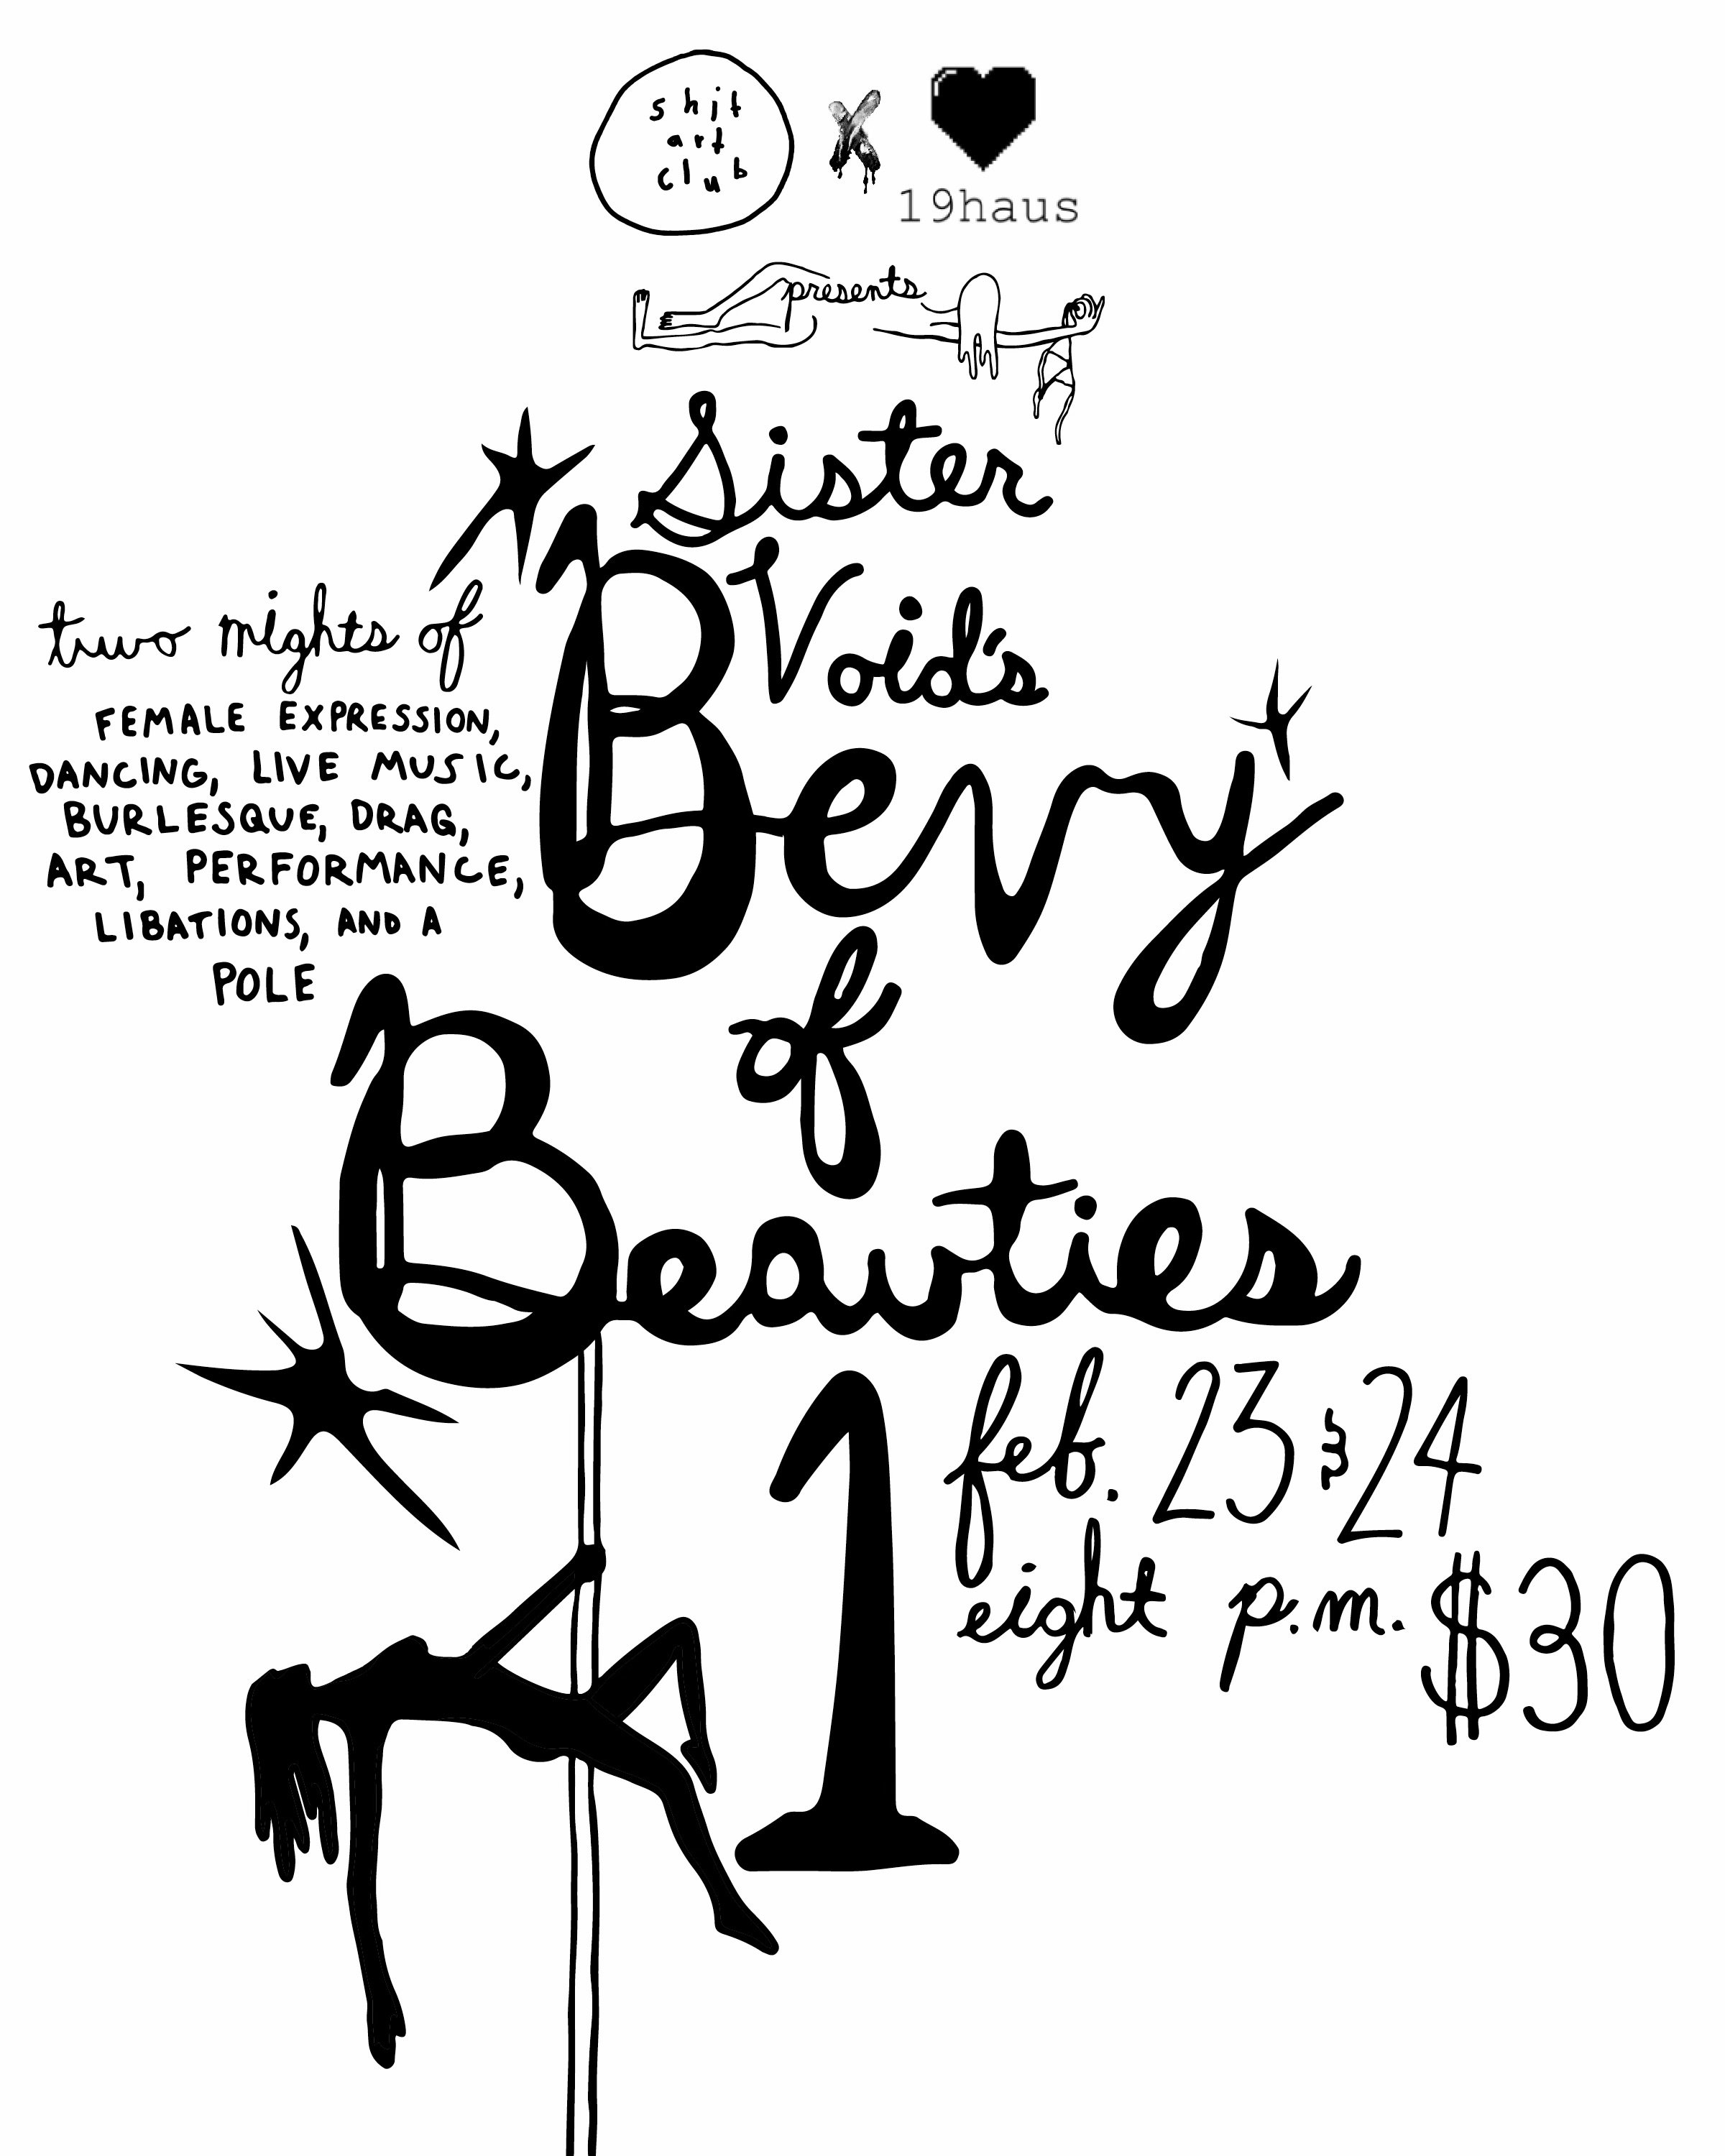 shit
art
club
X
19haus
presents
Sister
Void's
Bevy
of
Beauties
1
two nights of
FEMALE EXPRESSION,
DANCING, LIVE MUSIC,
BURLESQUE, DRAG,
ART, PERFORMANCE,
LIBATIONS, AND A
POLE
feb. 23 & 24
eight p.m. $30